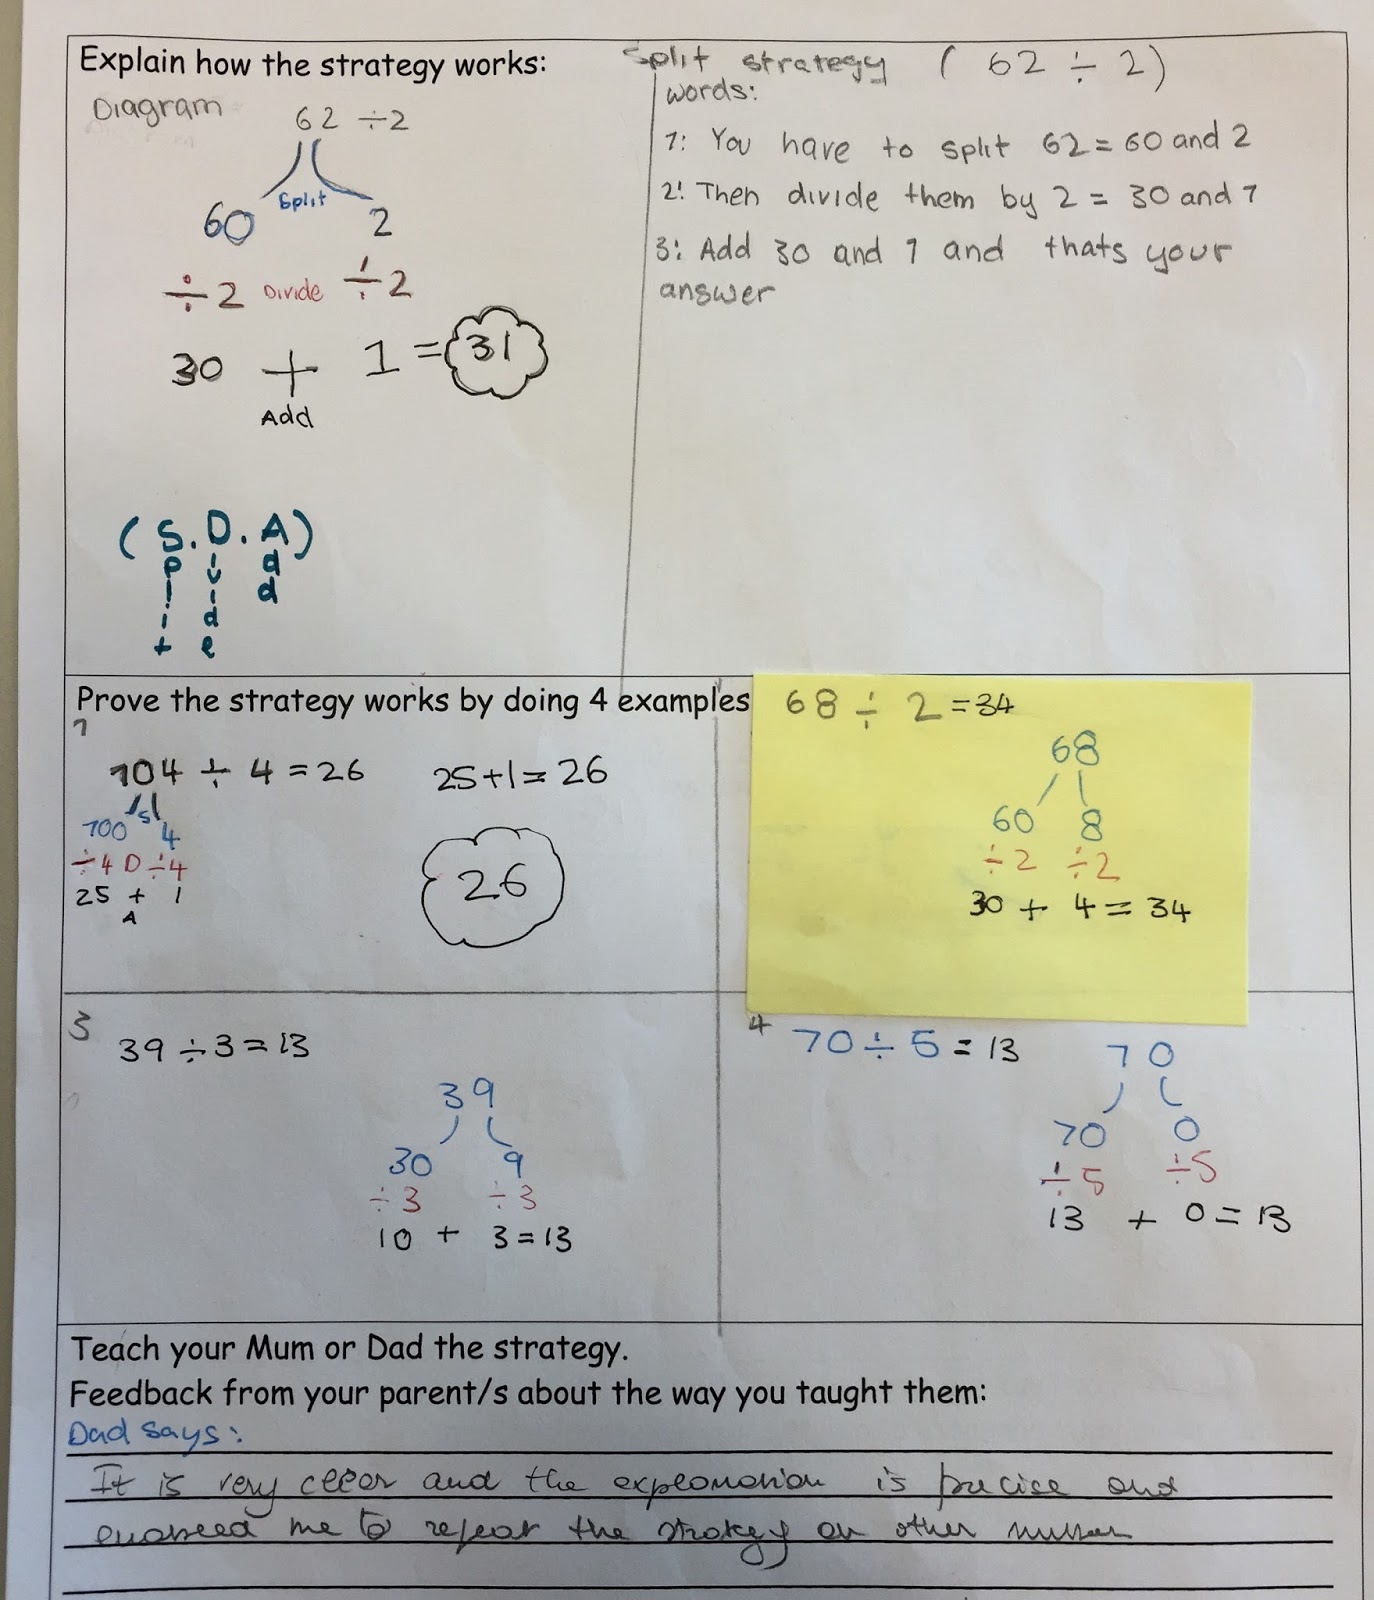 Explain how the strategy works:
Diagram
62 ÷2
Split
60 2
÷2 Divide ÷2
30 + 1 = 31
Add
(S.D.A)
Split
Divide
Add
Split strategy ( 62 ÷ 2)
words:
1: You have to split 62 = 60 and 2
2: Then divide them by 2 = 30 and 1
3: Add 30 and 1 and thats your
answer
Prove the strategy works by doing 4 examples
1
104 ÷ 4 = 26 25+1 = 26
S
100 4
÷4 D ÷4
25 + 1
A
26
68 ÷ 2 = 34
68
60 8
÷2 ÷2
30 + 4 = 34
3
39 ÷ 3 = 13
39
30 9
÷3 ÷3
10 + 3 = 13
4
70 ÷ 5 = 13
70
70 0
÷5 ÷5
13 + 0 = 13
Teach your Mum or Dad the strategy.
Feedback from your parent/s about the way you taught them:
Dad says:
It is very clear and the explanation is precise and
me to repeat the strategy on other